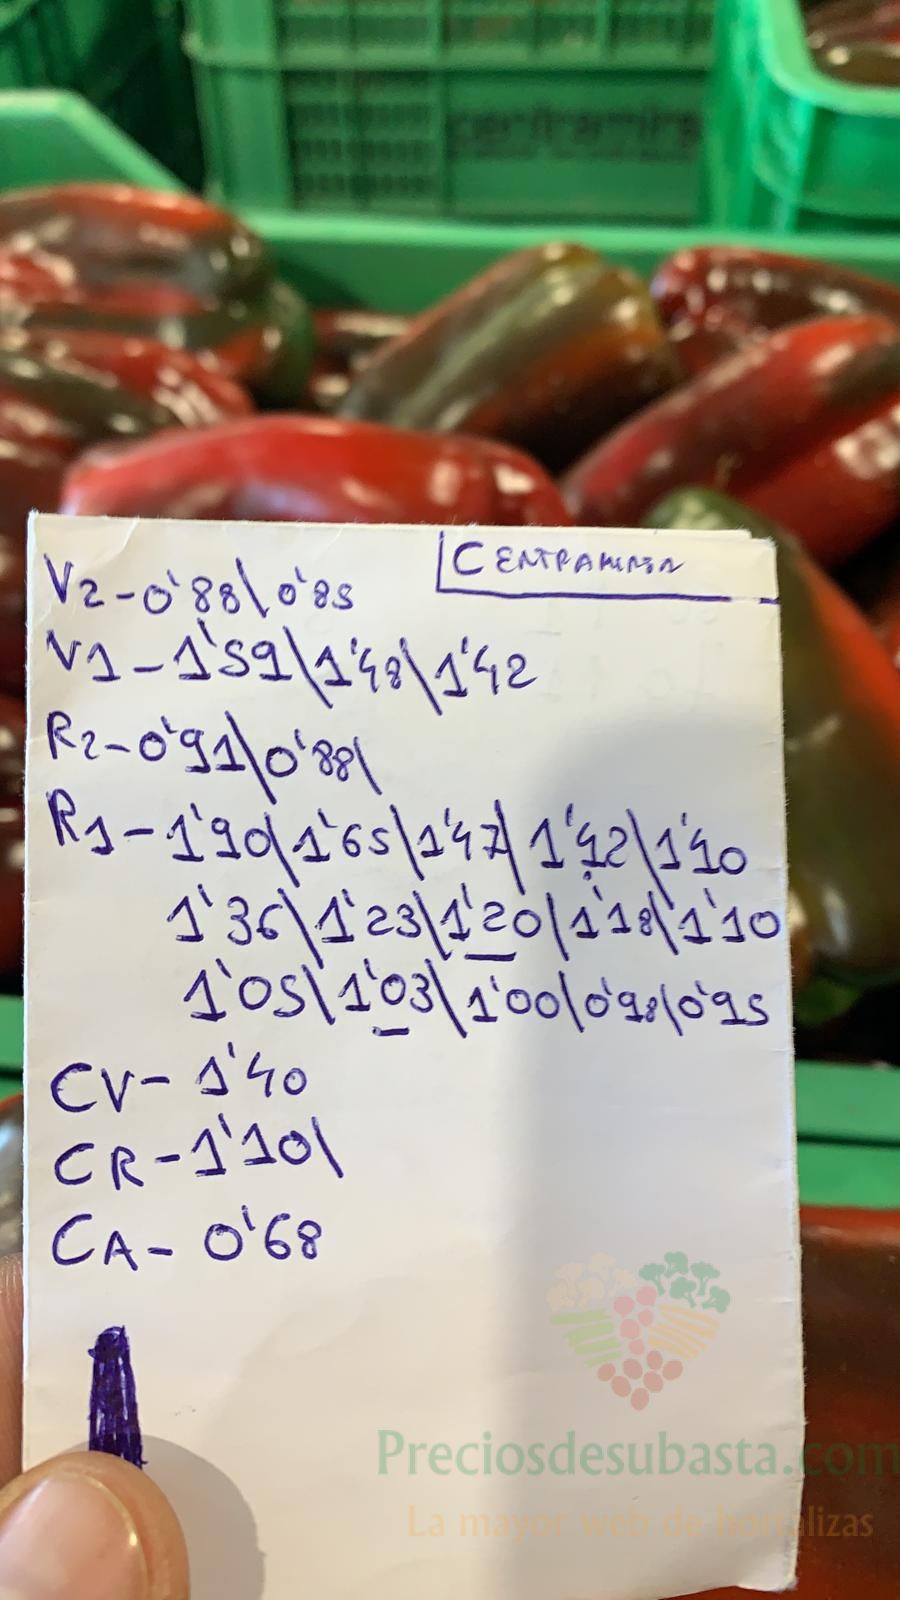 centramirsa
CENTRAMIRSA
V2-0'88\0'85
V1-1'59\1'48\1'42
R2-0'91\0'88\
R1-1'90\1'65\1'47\1'42\1'40
1'36\1'23\1'20\1'18\1'10
1'05\1'03\1'00\0'98\0'95
CV-1'40
CR-1'10\
CA-0'68
Preciosdesubasta.com
La mayor web de hortalizas